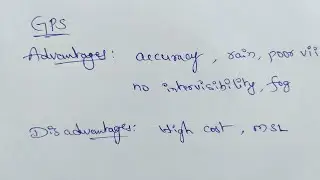 GPS
Advantages: accuracy, rain, poor vii
no introvisibility, fog
Disadvantages: High cost, MSL